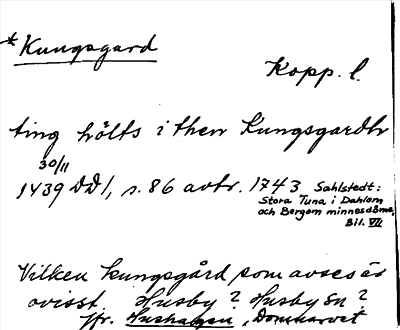 *Kungsgard
Kopp. l.
ting hölts i then Kungsgardh
30/11
1439 DD 1, s. 86 avtr. 1743 Sahlstedt:
Stora Tuna i Dahlom
och Bergom minnesdöme,
Bil. VII
Vilken kungsgård som avses är
ovisst. Husby? Husby sn?
Jfr. Hushagen, Domnarvet